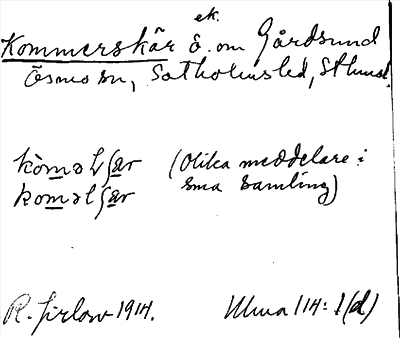 ek.
Kommerskär ö. om Gårdsund
Ösmo sn, Sotholms hd, Sthms l.
kòməʃær (Olika meddelare i
koməlʃær sma samling)
R. Jirlow 1914. Ulma 114: 1(d)